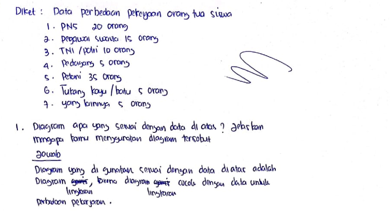 Diket : Data perbedaan pekerjaan orang tua siswa
1. PNS 20 orang
2. Pegawai swasta 15 orang
3. TNI / Polri 10 orang
4. Pedagang 5 orang
5. Petani 35 orang
6. Tukang kayu / batu 5 orang
7. yang lainnya 5 orang
1. Diagram apa yang sesuai dengan data di atas ? Jelaskan
mengapa kamu menggunakan diagram tersebut
Jawab
Diagram yang di gunakan sesuai dengan data di atas adalah
Diagram garis, karena diagram garis cocok dengan data untuk
lingkaran lingkaran
perbedaan pekerjaan.